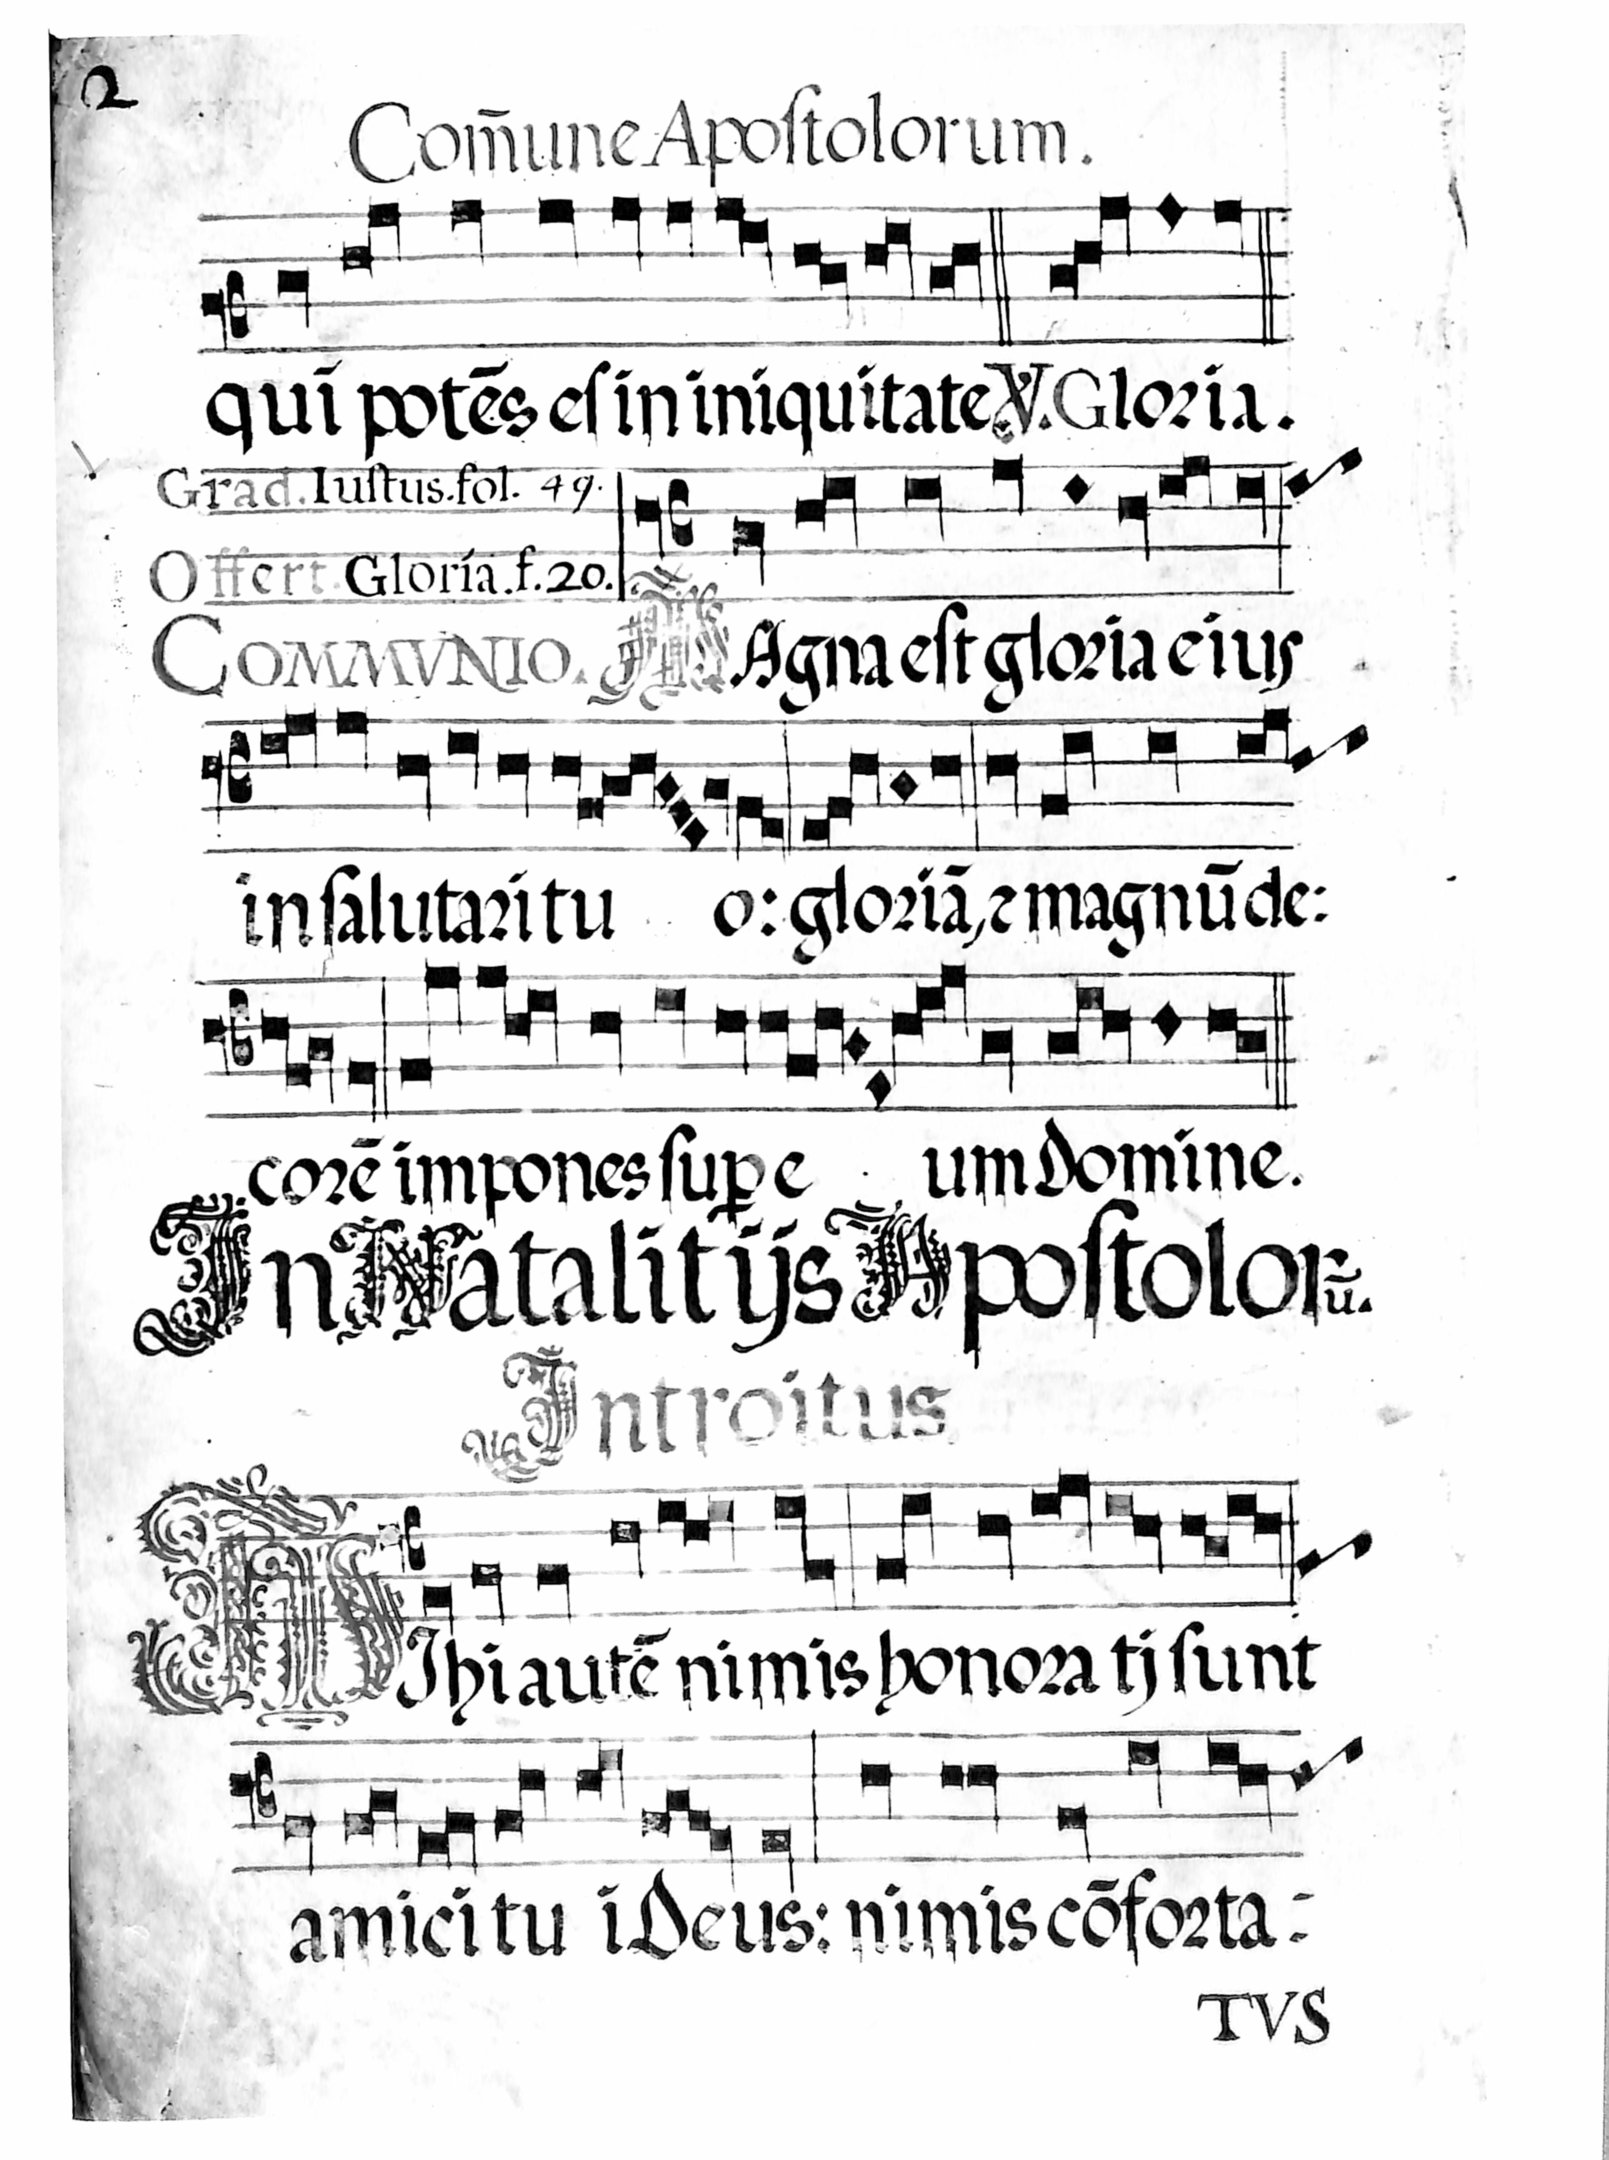 2
Com̃une Apostolorum.
qui potēs es in iniquitate ℣. Gloria.
Grad. Iustus. fol. 49.
Offert. Gloria. f. 20.
COMMVNIO. MAgna est gloria eius
in salutari tu o: gloriā, ⁊ magnū de:
corē impones suꝑ e um Domine.
In Natalitijs Apostolorū.
Introitus
MIhi autē nimis honora tj sunt
amici tu i Deus: nimis cōforta -
TVS